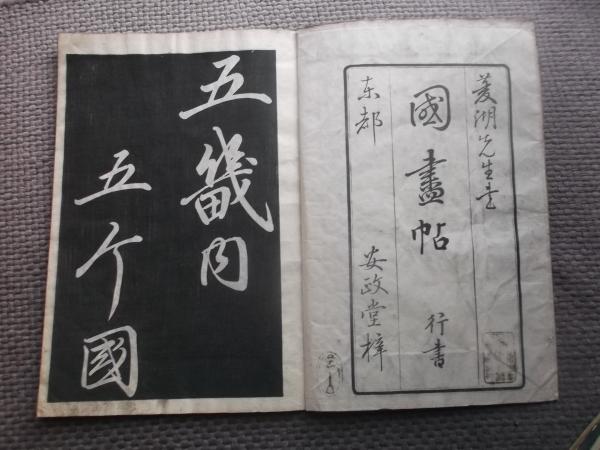 菱湖先生書
國盡帖 行書
東都 安政堂梓
五畿内
五个國